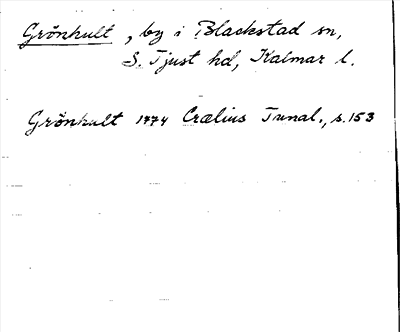 Grönhult, by i Blackstad sn,
S. Tjust hd, Kalmar l.
Grönhult 1774 Crælius Tunal., s. 153